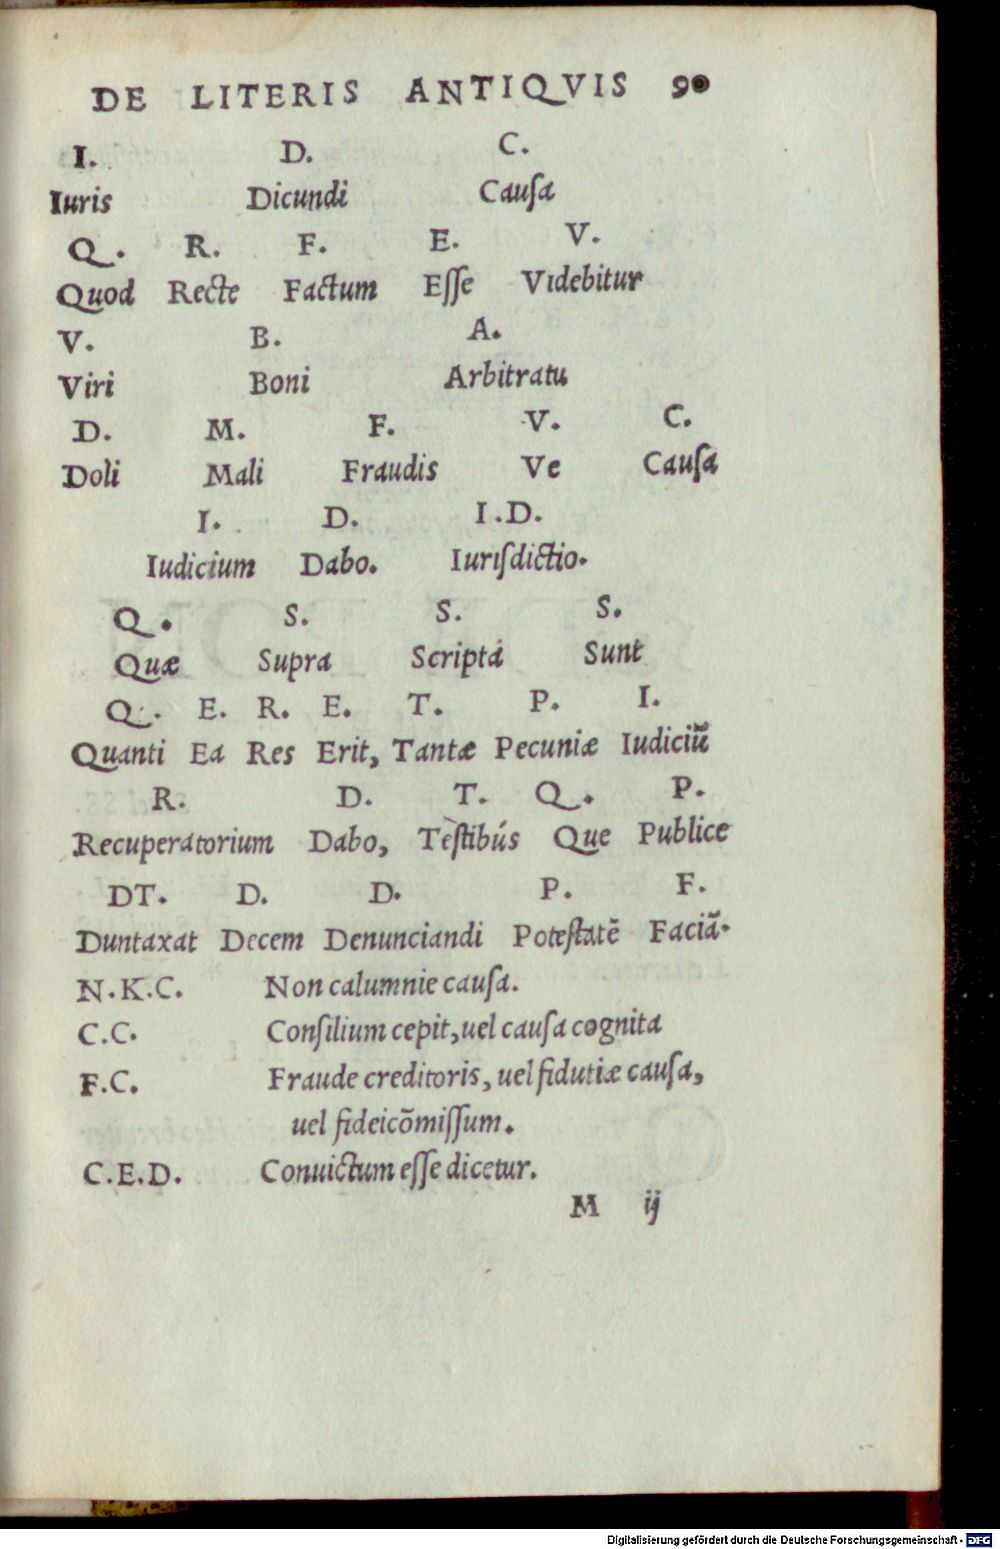 DE LITERIS ANTIQVIS 90
I. D. C.
Iuris Dicundi Cauſa
Q. R. F. E. V.
Quod Recte Factum Eſſe Videbitur
V. B. A.
Viri Boni Arbitratu
D. M. F. V. C.
Doli Mali Fraudis Ve Cauſa
I. D. I.D.
Iudicium Dabo. Iuriſdictio.
Q. S. S. S.
Quæ Supra Scripta Sunt
Q. E. R. E. T. P. I.
Quanti Ea Res Erit, Tantæ Pecuniæ Iudiciũ
R. D. T. Q. P.
Recuperatorium Dabo, Teſtibús Que Publice
DT. D. D. P. F.
Duntaxat Decem Denunciandi Poteſtatẽ Faciã.
N.K.C. Non calumnie cauſa.
C.C. Conſilium cepit, uel cauſa cognita
F.C. Fraude creditoris, uel fidutiæ cauſa,
uel fideicõmiſſum.
C.E.D. Conuictum eſſe dicetur.
M ij
Digitalisierung gefördert durch die Deutsche Forschungsgemeinschaft - DFG